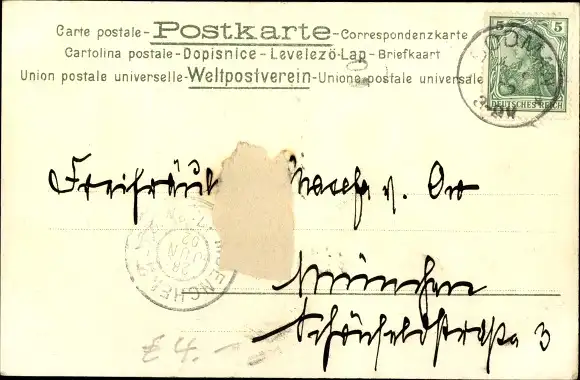 Carte postale – Postkarte – Correspondenzkarte
Cartolina postale – Dopisnice – Levelező-Lap – Briefkaart
Union postale universelle – Weltpostverein – Unione postale universale
5 5
DEUTSCHES REICH
Freifräul
v. Ow
München
Schönfeldstraße 3
28
JUN
02
£ 4. –